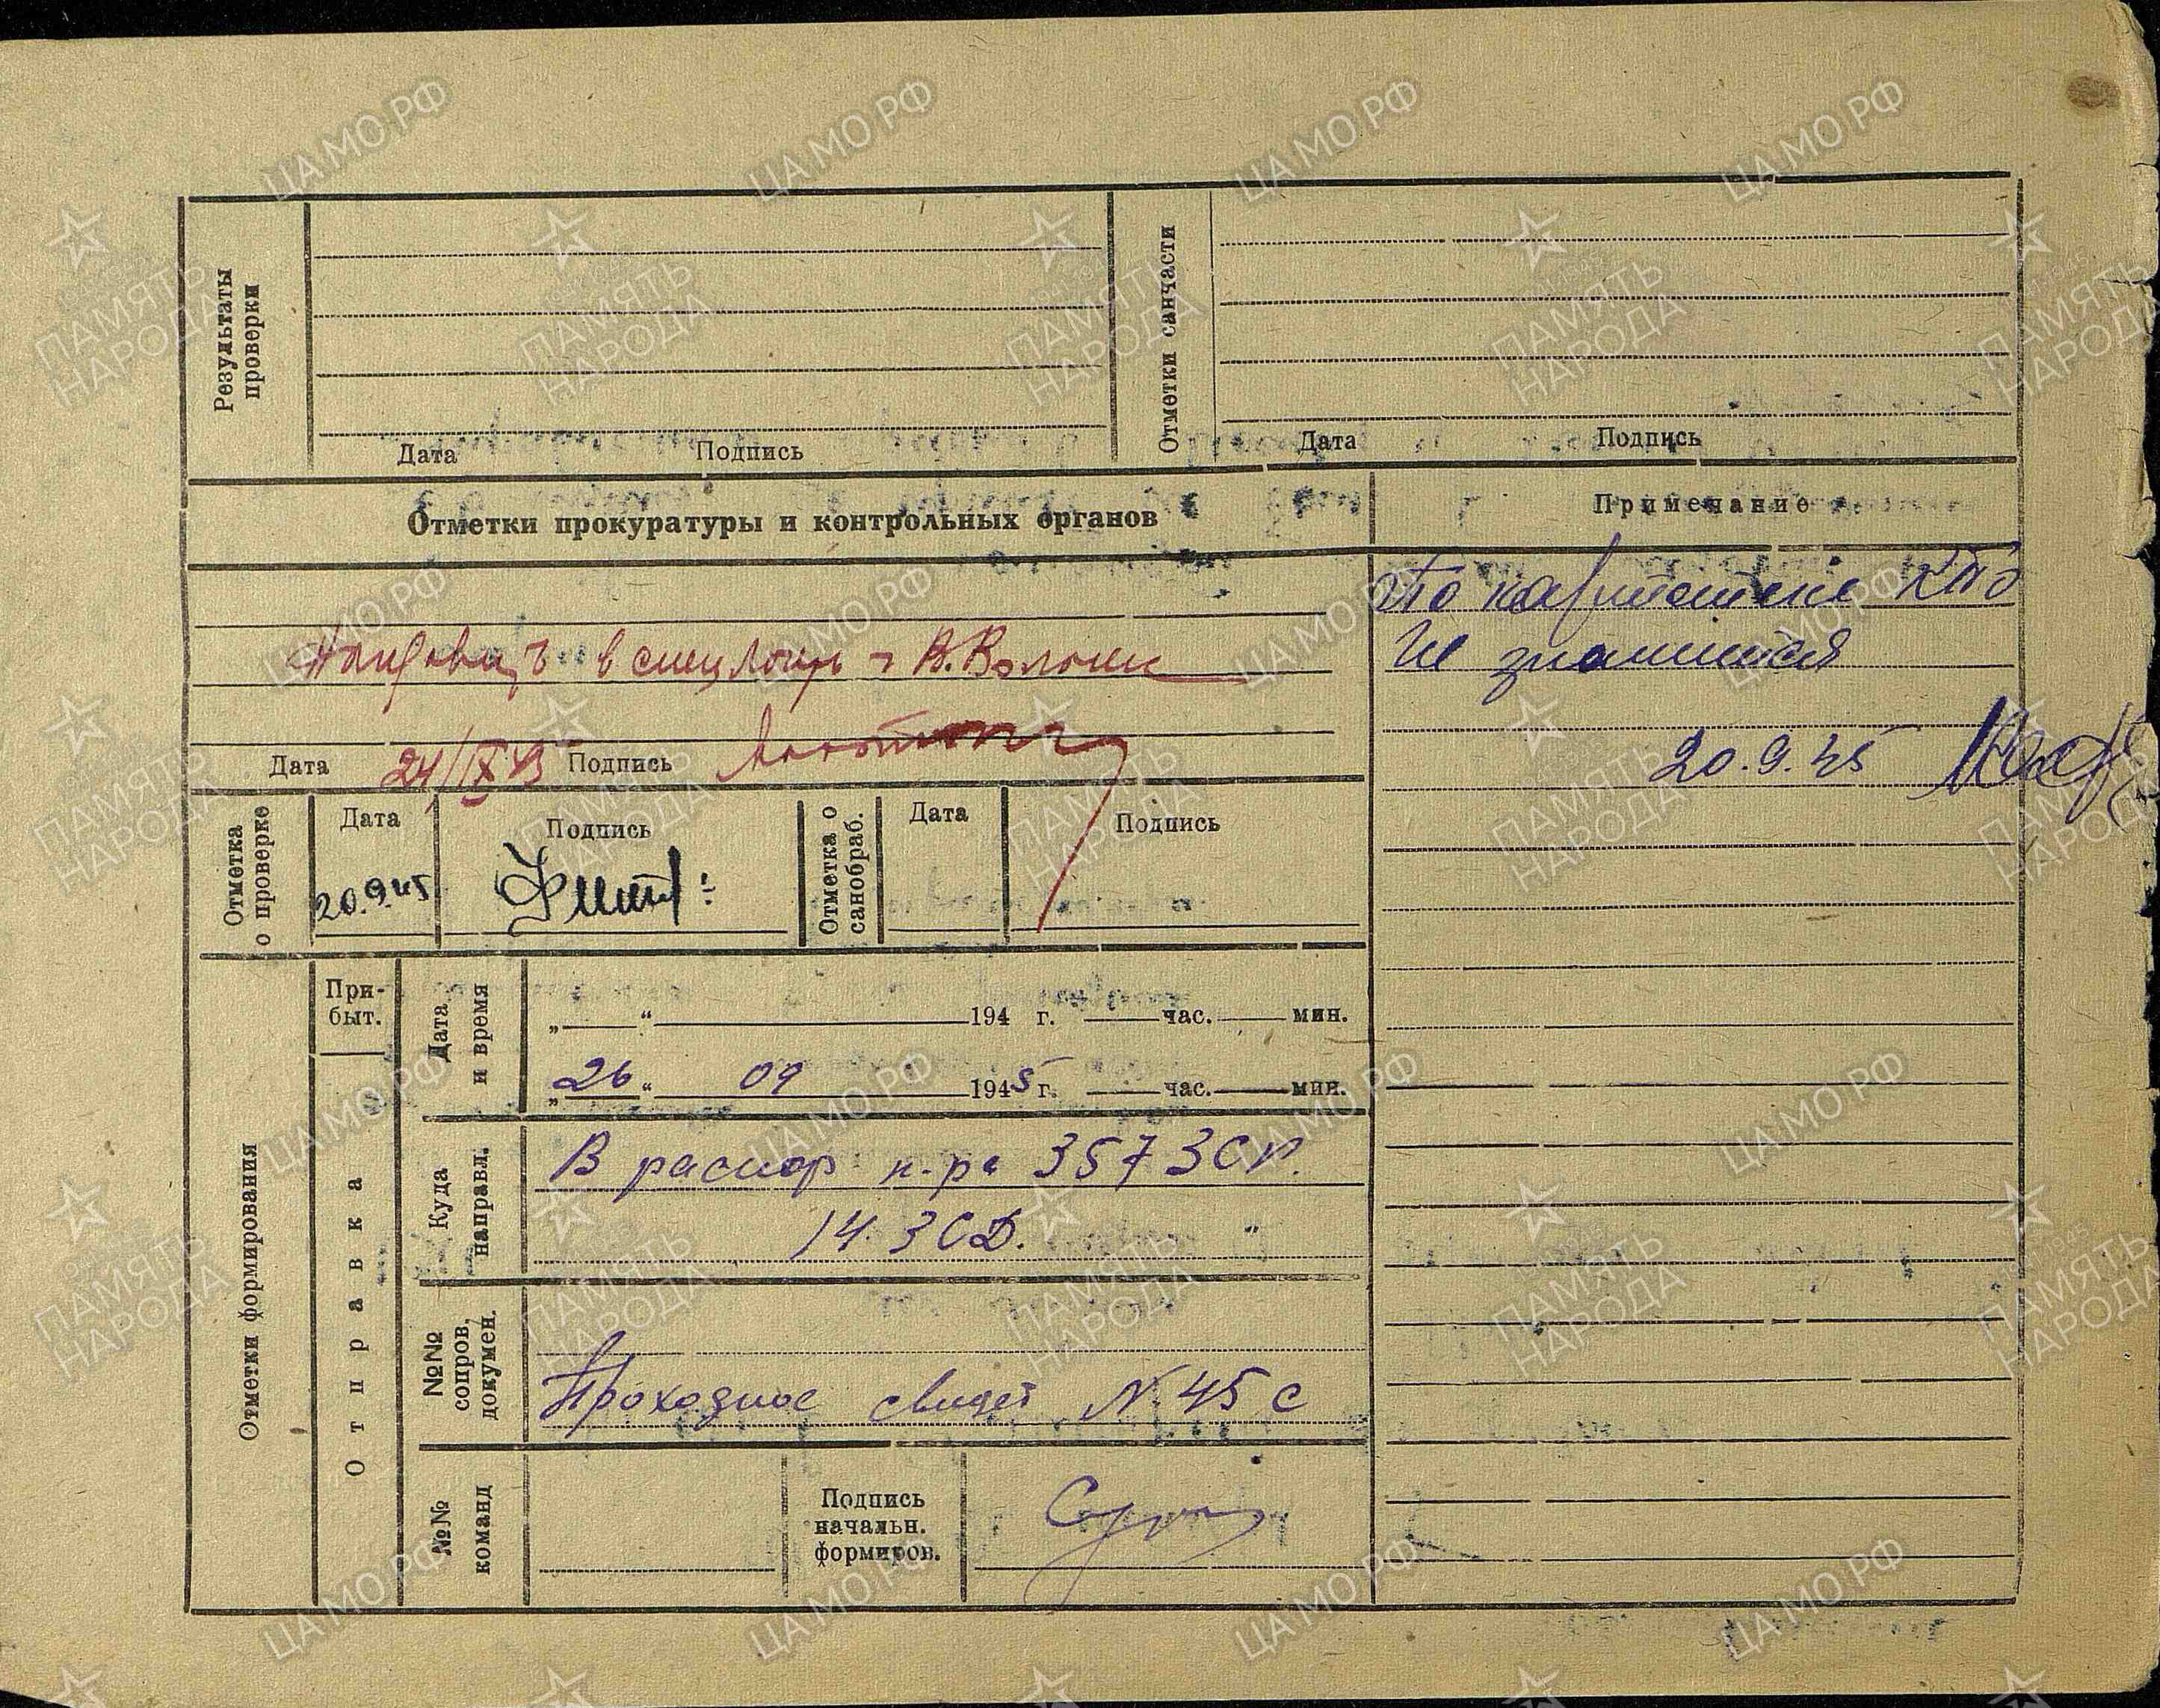 Результаты
проверки
Дата Подпись
Отметки санчасти
Дата Подпись
Отметки прокуратуры и контрольных органов
Направить в спецлагерь г В.Волочек
Дата 24/IX 45 Подпись
Отметка
о проверке
Дата
20.9.45
Подпись
Отметка о
санобраб.
Дата
Подпись
Примечание
По картотеке КПб
не значится
20.9.45
Отметки формирования
При-
быт.
Отправка
Дата
и время
„ “ 194 г. час. мин.
„26“ 09 1945 г. час. мин.
Куда
направл.
В распор к-ра 357 ЗСП.
14 ЗСД.
№№
сопров.
докумен.
Проходное свидет N 45 с
№№
команд
Подпись
начальн.
формиров.
ЦАМО РФ
ПАМЯТЬ
НАРОДА